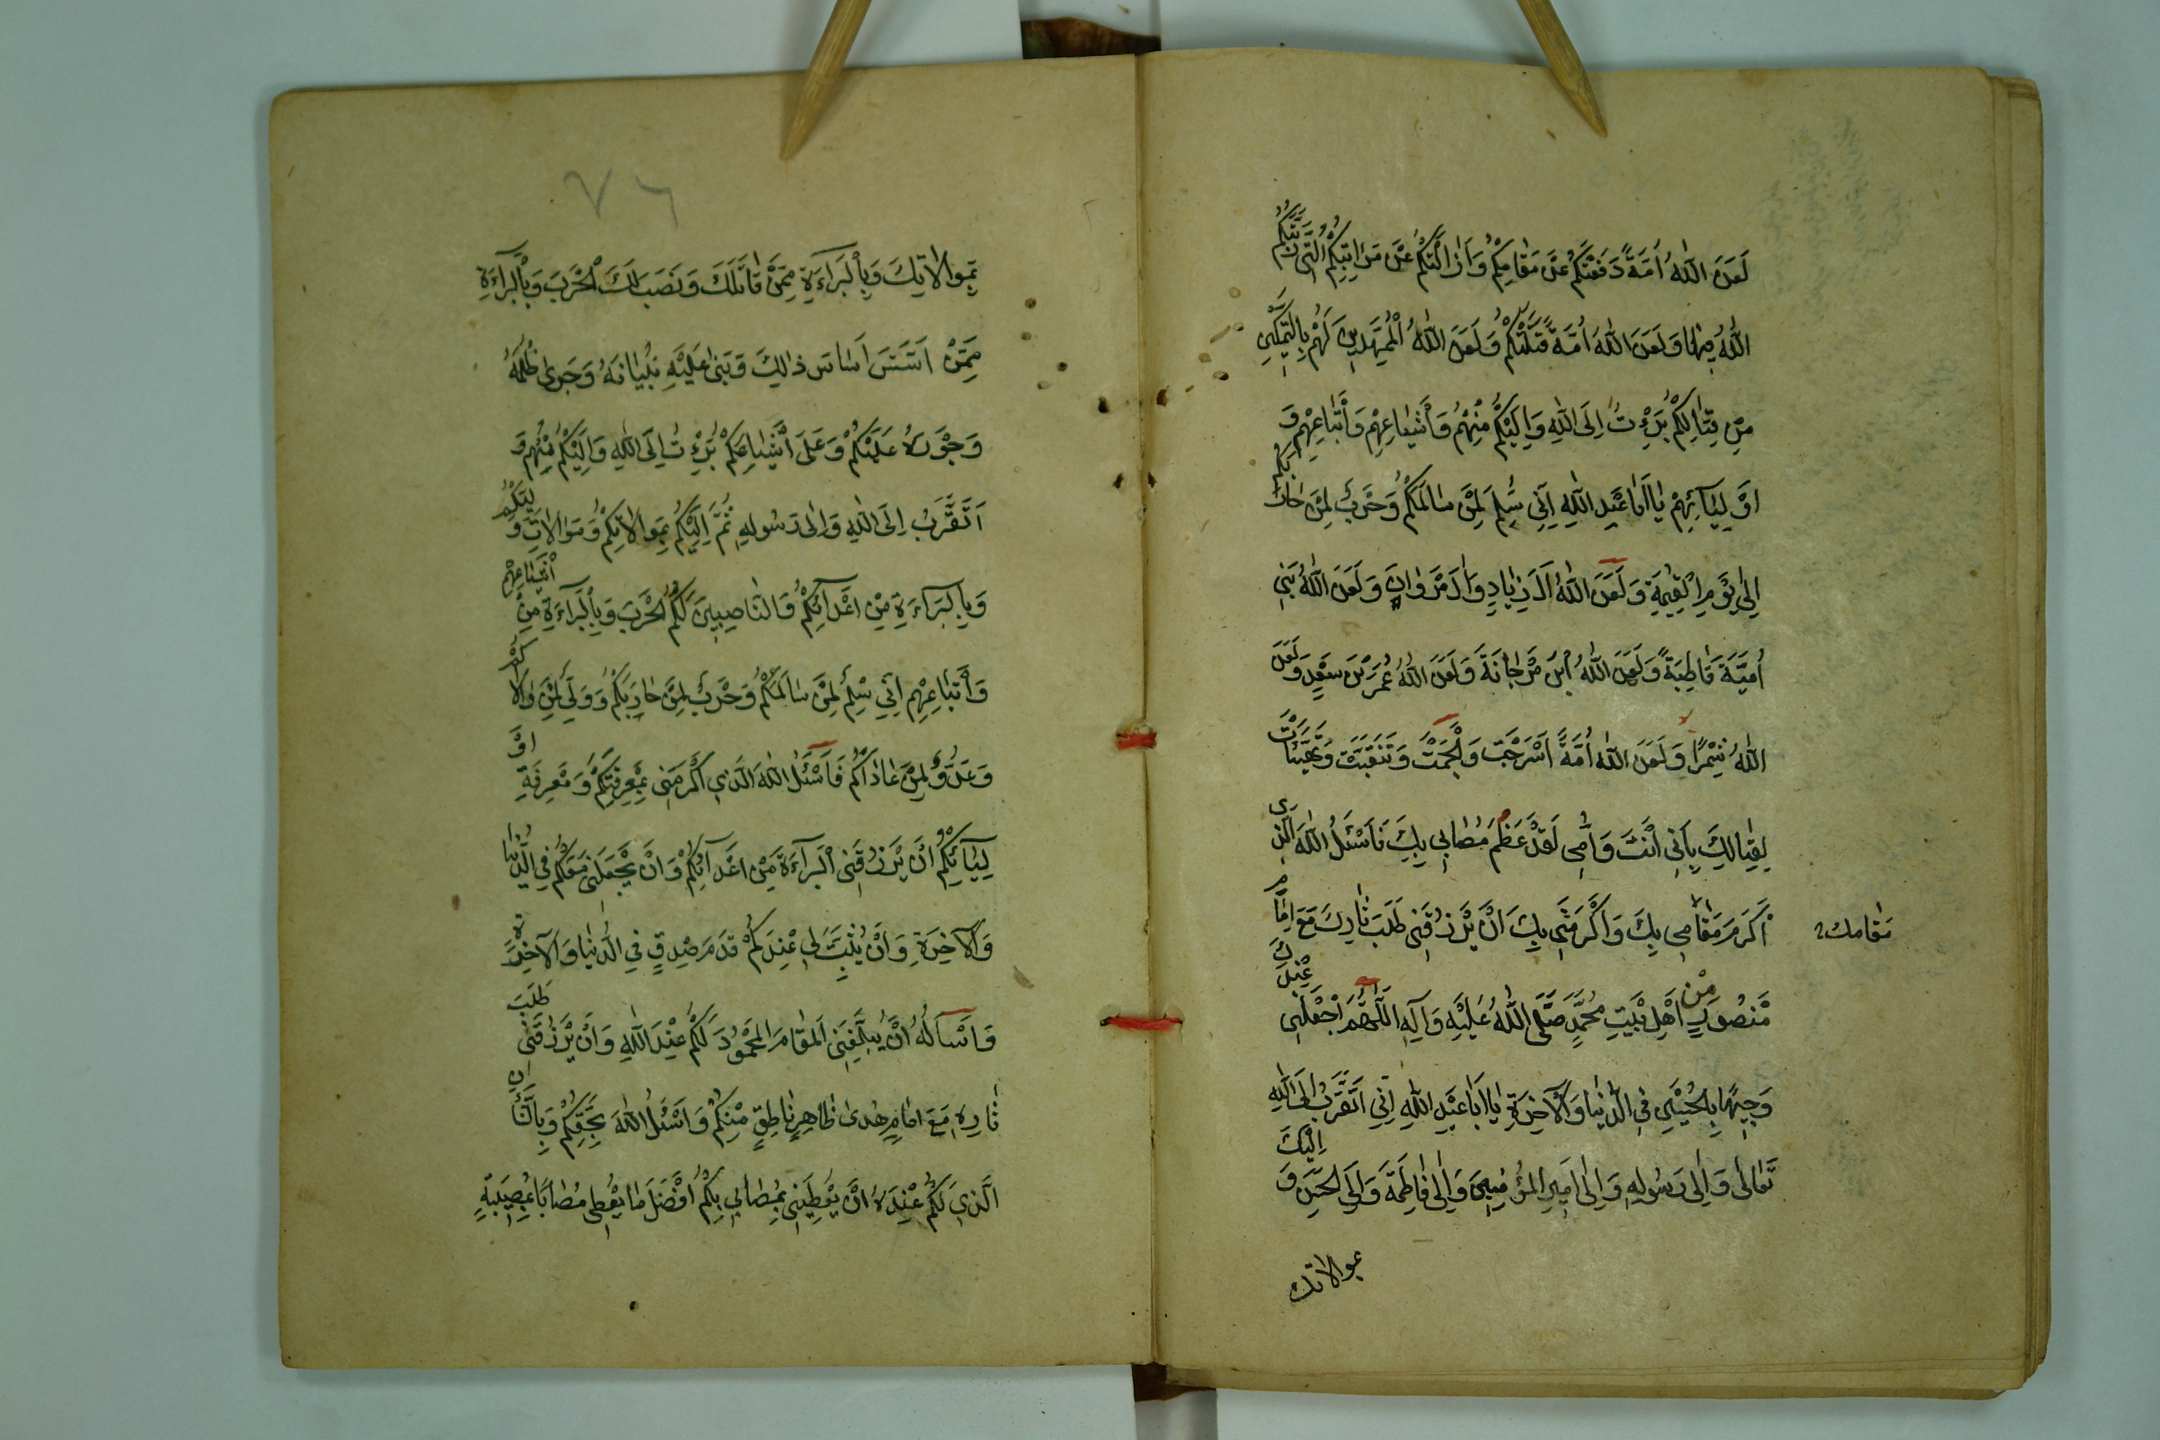 لَعَنَ اللّٰهُ اُمَّةً دَفَعَتْكُمْ عَنْ مَقٰامِكُمْ وَاَزٰالَتْكُمْ عَنْ مَرٰاتِبِكُمُ الَّتى رَتَّبَكُمُ
اللّٰهُ فِيْهٰا وَلَعَنَ اللّٰهُ اُمَّةً قَتَلَتْكُمْ وَلَعَنَ اللّٰهُ الْمُمَهِّدِيْنَ لَهُمْ بِالتَّمْكِيْنِ
مِنْ قِتٰالِكُمْ بَرِئْتُ اِلَى اللّٰهِ وَاِلَيْكُمْ مِنْهُمْ وَأَشْيٰاعِهِمْ وَأَتْبٰاعِهِمْ وَ
اَوْلِيٰآئِهِمْ يٰا اَبٰا عَبْدِ اللّٰهِ اِنِّي سِلْمٌ لِمَنْ سٰالَمَكُمْ وَحَرْبٌ لِمَنْ حٰارَبَكُمْ
اِلٰى يَوْمِ الْقِيٰمَةِ وَلَعَنَ اللّٰهُ اٰلَ زِيٰادٍ وَاٰلَ مَرْوٰانَ وَلَعَنَ اللّٰهُ بَنِي
اُمَيَّةَ قٰاطِبَةً وَلَعَنَ اللّٰهُ ابْنَ مَرْجٰانَةَ وَلَعَنَ اللّٰهُ عُمَرَ بْنَ سَعْدٍ وَلَعَنَ
اللّٰهُ شِمْرًا وَلَعَنَ اللّٰهُ اُمَّةً اَسْرَجَتْ وَاَلْجَمَتْ وَتَنَقَّبَتْ وَتَهَيَّئَاتْ
لِقِتٰالِكَ بِاَبِى اَنْتَ وَاُمِّى لَقَدْ عَظُمَ مُصٰابِى بِكَ فَاَسْئَلُ اللّٰهَ الَّذِى
اَكْرَمَ مَقٰامِى بِكَ وَاَكْرَمَنِى بِكَ اَنْ يَرْزُقَنِى طَلَبَ ثٰارِكَ مَعَ اِمٰامٍ
مَقٰامك
مَنْصُورٍ مِنْ اَهْلِ بَيْتِ مُحَمَّدٍ صَلَّى اللّٰهُ عَلَيْهِ وَآلِهِ اَللّٰهُمَّ اجْعَلْنِى عِنْدَكَ
وَجِيْهًا بِالْحُسَيْنِ فِى الدُّنْيٰا وَالْاٰخِرَةِ يٰا اَبٰا عَبْدِ اللّٰهِ اِنِّى اَتَقَرَّبُ اِلَى اللّٰهِ
تَعٰالىٰ وَاِلٰى رَسُولِهِ وَاِلٰى اَمِيرِ الْمُؤْمِنِيْنَ وَاِلٰى فٰاطِمَةَ وَاِلَى الْحَسَنِ وَاِلَيْكَ
بموالاتك
٧٦
بِمُوالاٰتِكَ وَبِالْبَرَآءَةِ مِمَّنْ قٰاتَلَكَ وَنَصَبَ لَكَ الْحَرْبَ وَبِالْبَرٰآءَةِ
مِمَّنْ اَسَّسَ اَسٰاسَ ذٰلِكَ وَبَنٰى عَلَيْهِ بُنْيٰانَهُ وَجَرىٰ ظُلْمَهُ
وَجَوْرَهُ عَلَيْكُمْ وَعَلَى اَشْيٰاعِكُمْ بَرِئْتُ اِلَى اللّٰهِ وَاِلَيْكُمْ مِنْهُمْ وَ
اَتَقَرَّبُ اِلَى اللّٰهِ وَاِلٰى رَسُولِهِ ثُمَّ اِلَيْكُمْ بِمُوالاٰتِكُمْ وَمُوٰالاٰتِ وَلِيِّكُمْ
وَبِالْبَرٰاءَةِ مِنْ اَعْدٰآئِكُمْ وَالنّٰاصِبِيْنَ لَكُمُ الْحَرْبَ وَبِالْبَرٰآءَةِ مِنْ اَشْيٰاعِهِمْ
وَأَتْبٰاعِهِمْ اِنِّي سِلْمٌ لِمَنْ سٰالَمَكُمْ وَحَرْبٌ لِمَنْ حٰارَبَكُمْ وَوَلِيٌّ لِمَنْ وٰالاٰكُمْ
وَعَدُوٌّ لِمَنْ عٰادٰاكُمْ فَاَسْئَلُ اللّٰهَ الَّذِي اَكْرَمَنِى بِمَعْرِفَتِكُمْ وَمَعْرِفَةِ اَوْ
لِيٰآئِكُمْ اَنْ يَرْزُقَنِى الْبَرآءَةَ مِنْ اَعْدٰآئِكُمْ وَاَنْ يَجْعَلَنِى مَعَكُمْ فِي الدُّنْيٰا
وَالْاٰخِرَةِ وَاَنْ يُثَبِّتَ لِى عِنْدَكُمْ قَدَمَ صِدْقٍ فِي الدُّنْيٰا وَالْآخِرَةِ
وَاَسْاَلُهُ اَنْ يُبَلِّغَنِى الْمَقٰامَ الْمَحْمُوْدَ لَكُمْ عِنْدَ اللّٰهِ وَاَنْ يَرْزُقَنِى طَلَبَ
ثٰارِهِ مَعَ اِمٰامٍ هُدىٰ ظٰاهِرٍ نٰاطِقٍ مِنْكُمْ وَاَسْئَلُ اللّٰهَ بِحَقِّكُمْ وَبِالشَّأْنِ
الَّذِي لَكُمْ عِنْدَهُ اَنْ يُعْطِيَنِى بِمُصٰابِي بِكُمْ اَفْضَلَ مٰا يُعْطِى مُصٰابًا بِمُصِيبَتِهِ